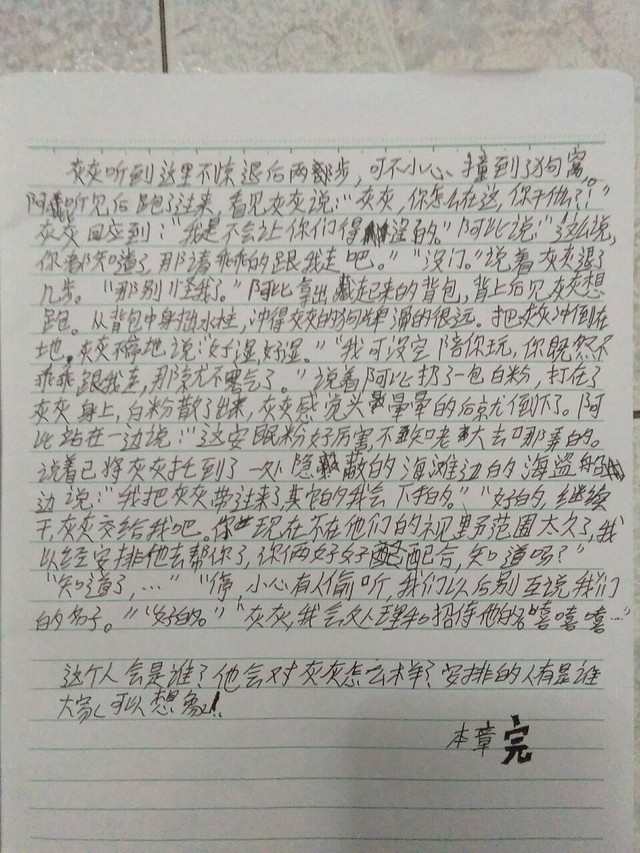 灰灰听到这里不惊退后两步,可不小心撞到了狗窝。
阿此听见后跑了过来,看见灰灰说:“灰灰,你怎么在这,你干什么?!”
灰灰回应到:“我是不会让你们得逞的。”阿此说:“这么说,
你都知道了,那请乖乖的跟我走吧。”“没门。”说着灰灰退了
几步。“那别怪我了。”阿此拿出藏起来的背包,背上后见灰灰想
跑。从背包中身抽水柱,冲得灰灰的狗群滑的很远。把灰灰冲倒在
地。灰灰不停地说:“好湿,好湿。”“我可没空陪你玩,你既然不
乖乖跟我走,那就不客气了。”说着阿此扔了一包白粉,打在了
灰灰身上,白粉散了出来,灰灰感觉头晕晕的后就倒下了。阿
此站在一边说:“这安眠粉好厉害,不知老大去哪弄的。
说着已将灰灰托到了一处隐蔽的海滩边的海盗船
边说:“我把灰灰带过来了,其它的我会下拍的。”“好的,继续
干,灰灰交给我吧。你现在不在他们的视野范围太久了,我
以经安排他去帮你了,你俩好好配合,知道吗?”
“知道了,…”“停,小心有人偷听,我们以后别互说我们
的名子。”“好的。”“灰灰,我会处理和招待他的,嘻嘻嘻…”
这个人会是谁?他会对灰灰怎么样?安排的人有是谁
大家可以想象!
本章完